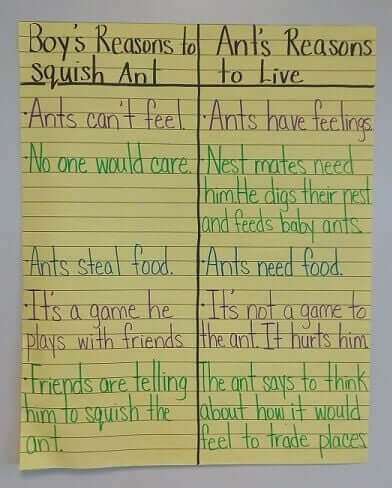 Boy's Reasons to
squish Ant
Ant's Reasons
to Live
·Ants can't feel.
·Ants have feelings
·No one would care.
·Nest mates need
him. He digs their nest
and feeds baby ants.
·Ants steal food.
·Ants need food.
·It's a game he
plays with friends
·It's not a game to
the ant. It hurts him.
·Friends are telling
him to squish the
ant.
The ant says to think
about how it would
feel to trade places